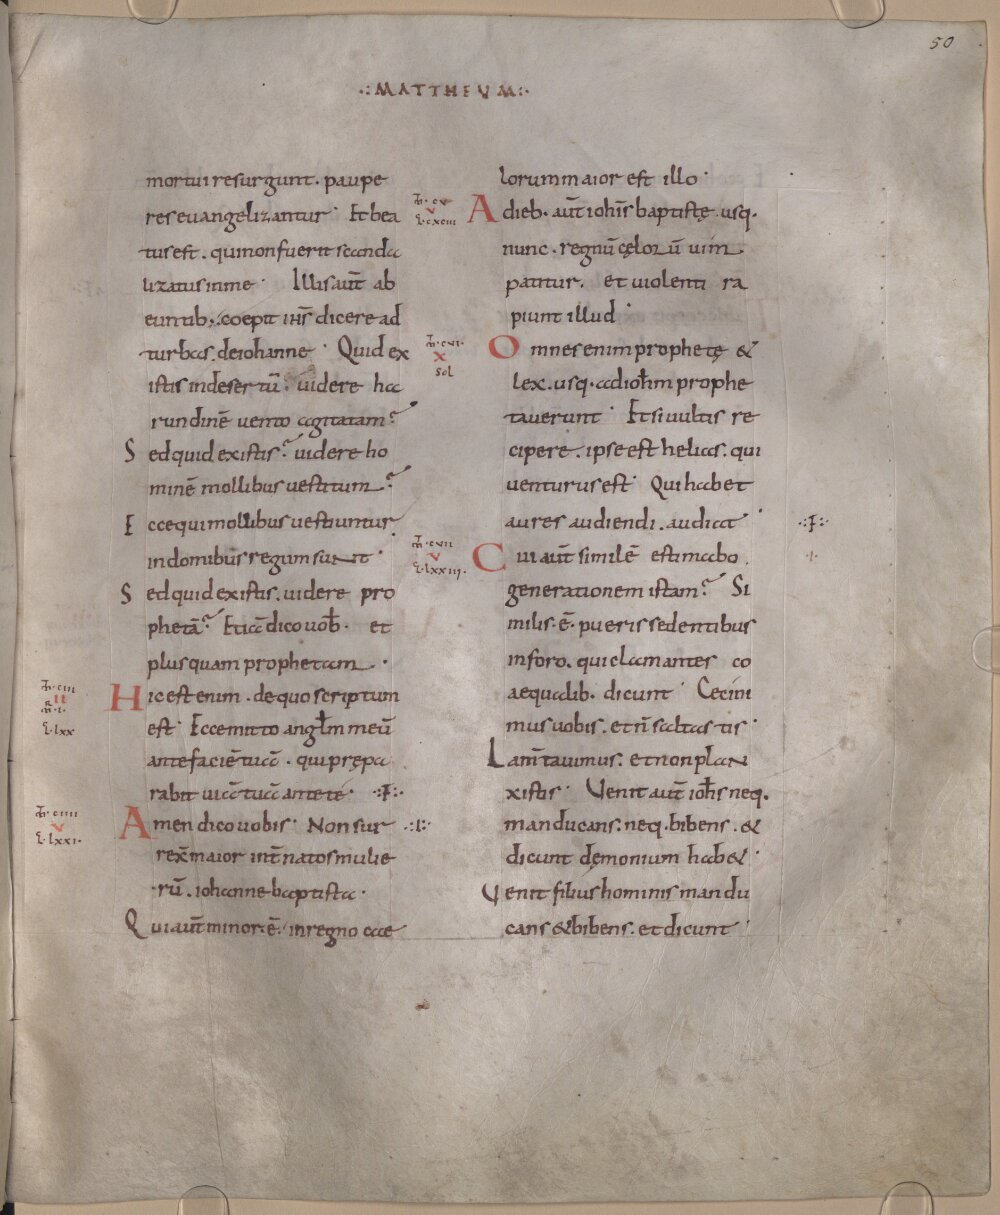 50
.:MATTHEUM:.
mortui resurgunt. paupe
res euangelizantur. Et bea
tus est. qui non fuerit scanda
lizatus in me. Illis aut̄ ab
euntib; coepit ih̄s dicere ad
turbas. de iohanne. Quid ex
istis in desertū. uidere ha
rundinē uento agitatam?
Sed quid existis? uidere ho
minē mollibus uestitum?
Ecce qui mollibus uestiuntur
in domibus regum sunt.
Sed quid existis. uidere pro
phetā? Etiā dico uob̄. et
plus quam prophetam.
m̄.ciii
ii
m̄.i.
l.lxx
Hic est enim. de quo scriptum
est. Ecce mitto angl̄m meū
ante faciē tuā. qui prępa
rabit uiā tuā ante te. .:F:.
m̄.ciiii
v
l.lxxi.
Amen dico uobis. Non sur .:i:.
rex̄ maior int̄ natos mulie
rū. iohanne baptista.
Qui aut̄ minor.ē. in regno cae
lorum maior est illo.
m̄.cv
v
l.cxciii
A dieb. aut̄ ioh̄is baptistę. usq.
nunc. regnū cęlorū uim
patitur. et uiolenti ra
piunt illud.
m̄.cvi.
x
sol
Omnes enim prophetę &
lex. usq. ad ioh̄m prophe
tauerunt. Et si uultis re
cipere. ipse est helias. qui
uenturus est. Qui habet
aures audiendi. audiat. .:F:.
m̄.cvii
v
l.lxxiii.
Cui aut̄ similē estimabo .i.
generationem istam? Si
milis.ē. pueris sedentibus
in foro. qui clamantes co
aequalib. dicunt. Cecini
mus uobis. et n̄ saltastis.
Lam̄tauimus. et non plan
xistis. Uenit aut̄ ioh̄is neq.
manducans. neq. bibens. &
dicunt dęmonium hab&.
Uenit filius hominis mandu
cans & bibens. et dicunt.